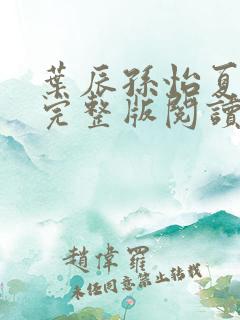 葉辰孫怡夏
完整版閱讀
趙偉羅
未经同意禁止转载